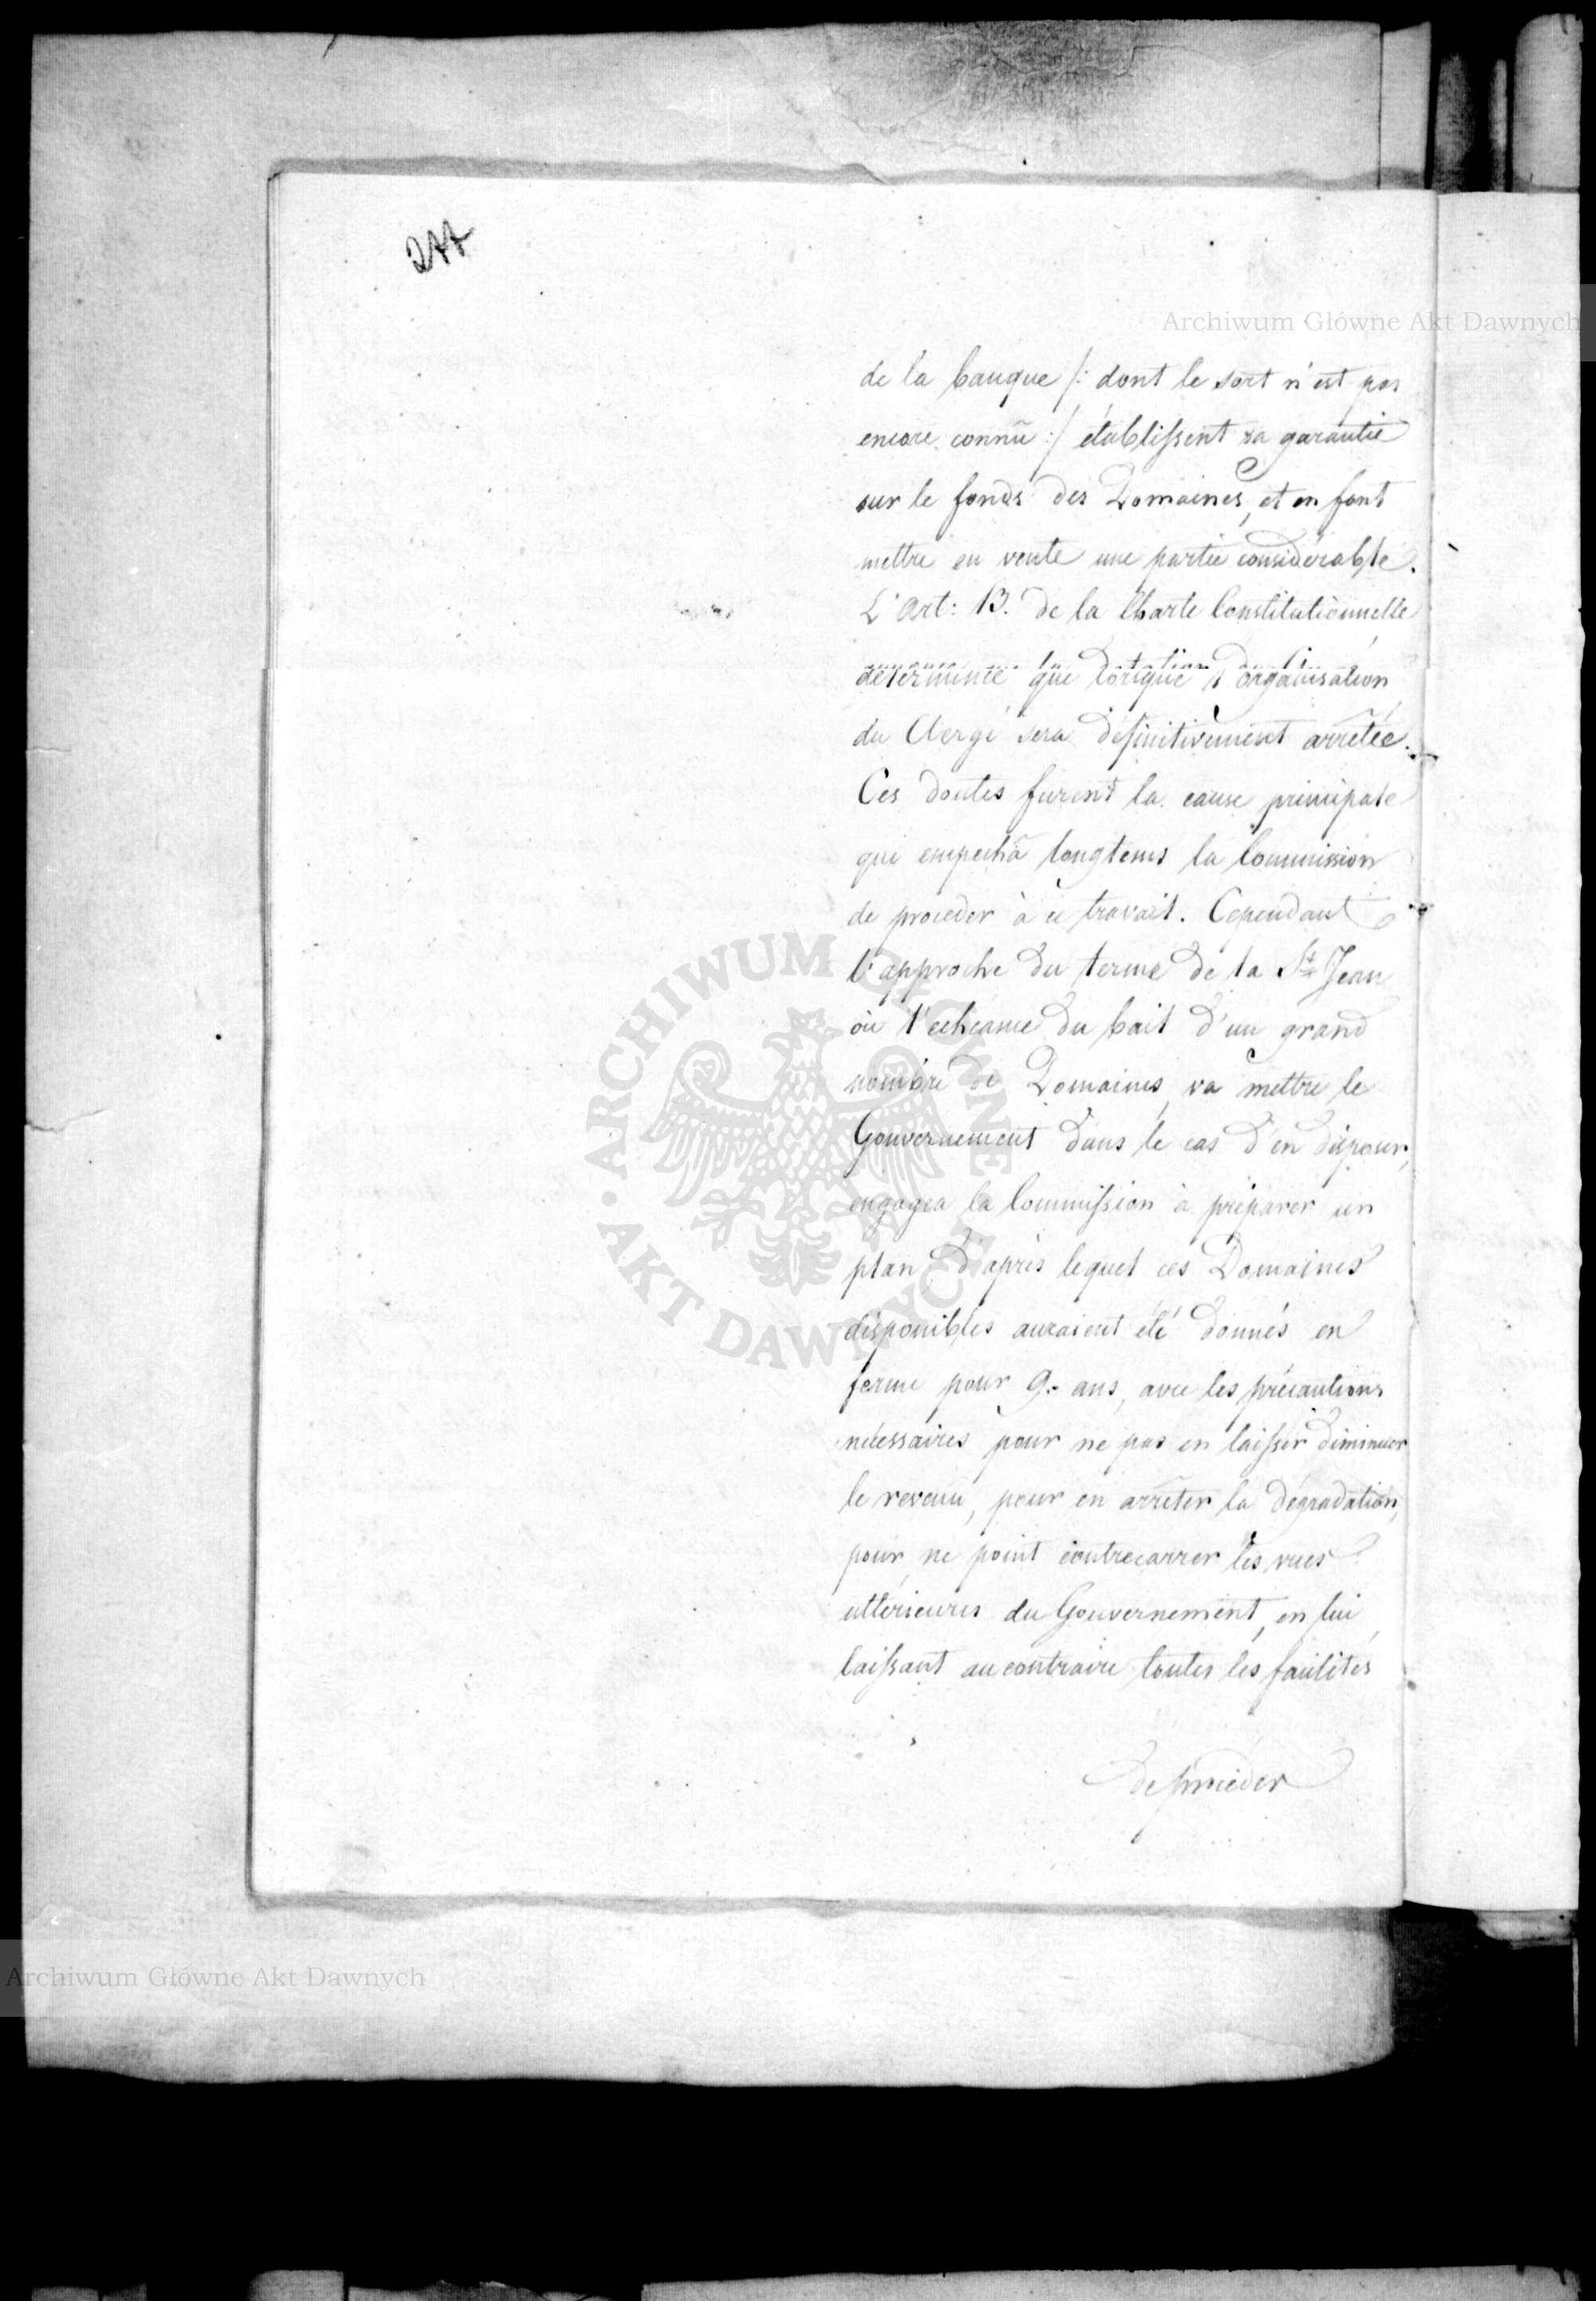 244
Archiwum Główne Akt Dawnych
de la banque /: dont le sort n'est pas
encore connû :/ établissent sa garantie
sur le fonds des Domaines, et en font
mettre en vente une partie considérable.
L'Art: 13. de la Charte Constitutionnelle
détermine que lorsque l'organisation
du Clergé sera définitivement arrêtée.
Ces doutes furent la cause principale
qui empecha longtems la Commission
de proceder à ce travail. Cependant
l'approche du terme de la St Jean
où l'echéance du bail d'un grand
nombre de Domaines va mettre le
Gouvernement dans le cas d'en disposer,
engagea la Commission à préparer un
plan d'après lequel ces Domaines
disponibles auraient été donnés en
ferme pour 9.- ans, avec les précautions
nécessaires pour ne pas en laisser diminuer
le revenu, pour en arrêter la dégradation,
pour ne point contrecarrer les vues
ultérieures du Gouvernement, en lui
laissant au contraire toutes les facilités
de procéder
ARCHIWUM GŁÓWNE
AKT DAWNYCH
Archiwum Główne Akt Dawnych